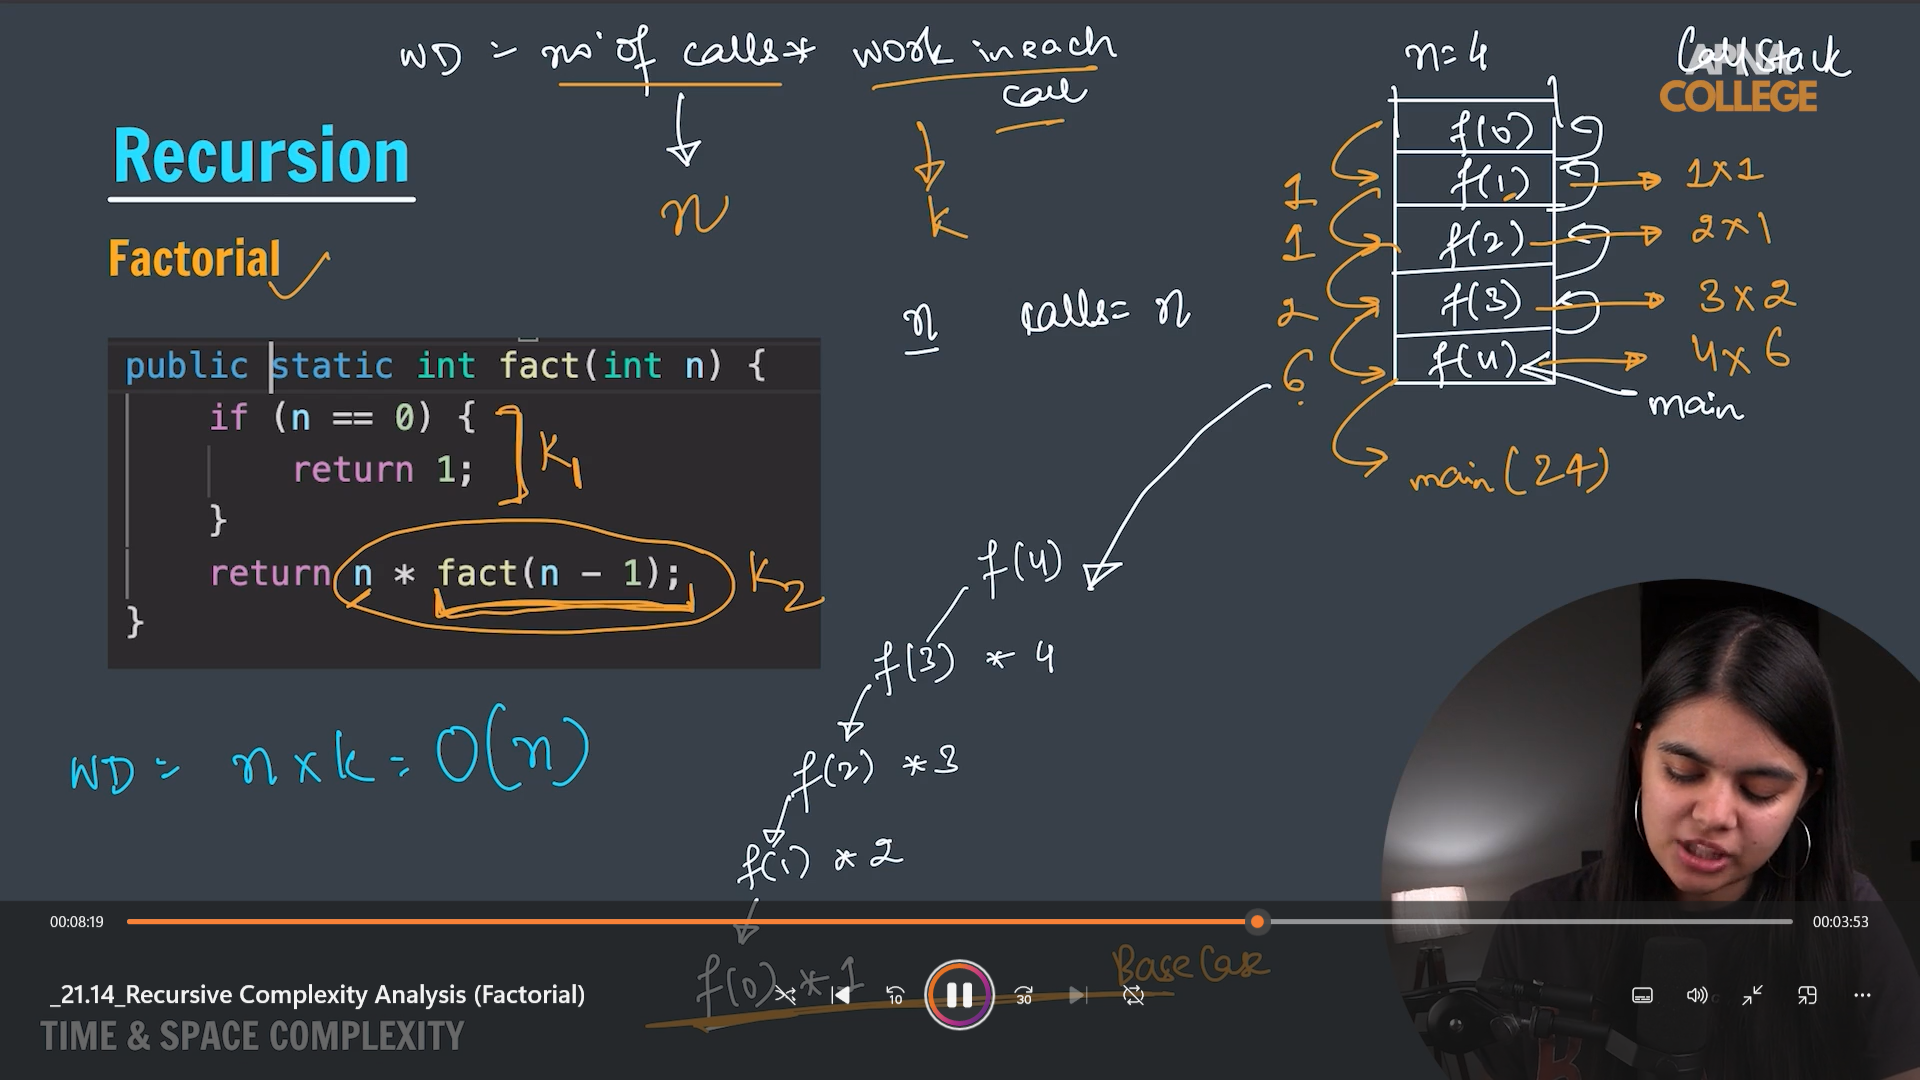 WD = no. of calls * work in each call
n
k
Recursion
Factorial
n calls = n
public static int fact(int n) {
if (n == 0) {
return 1;
}
return n * fact(n - 1);
}
K1
K2
WD = n x k = O(n)
n=4
Call Stack
APNA
COLLEGE
f(0)
1 f(1) 1x1
1 f(2) 2x1
2 f(3) 3x2
6 f(4) 4x6
main
main (24)
f(4)
f(3) * 4
f(2) * 3
f(1) * 2
f(0) * 1
Base Case
00:08:19
00:03:53
_21.14_Recursive Complexity Analysis (Factorial)
10
30
TIME & SPACE COMPLEXITY